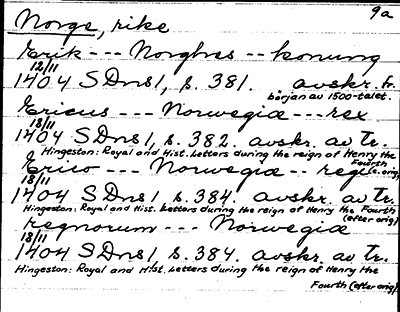 9a
Norge, rike
Erik --- Norghes -- konung
12/11
1404 SDns1, s. 381. avskr. fr.
början av 1500-talet.
Ericus --- Norwegiæ --- rex
18/11
1404 SDns1, s. 382. avskr. av Tr.
Hingeston: Royal and Hist. Letters during the reign of Henry the Fourth (e. orig)
Erico --- Norwegiæ -- regi
18/11
1404 SDns1, s. 384. avskr. av Tr.
Hingeston: Royal and Hist. Letters during the reign of Henry the Fourth (efter orig)
regnorum --- Norwegiæ
18/11
1404 SDns1, s. 384. avskr. av Tr.
Hingeston: Royal and Hist. Letters during the reign of Henry the
Fourth (efter orig)